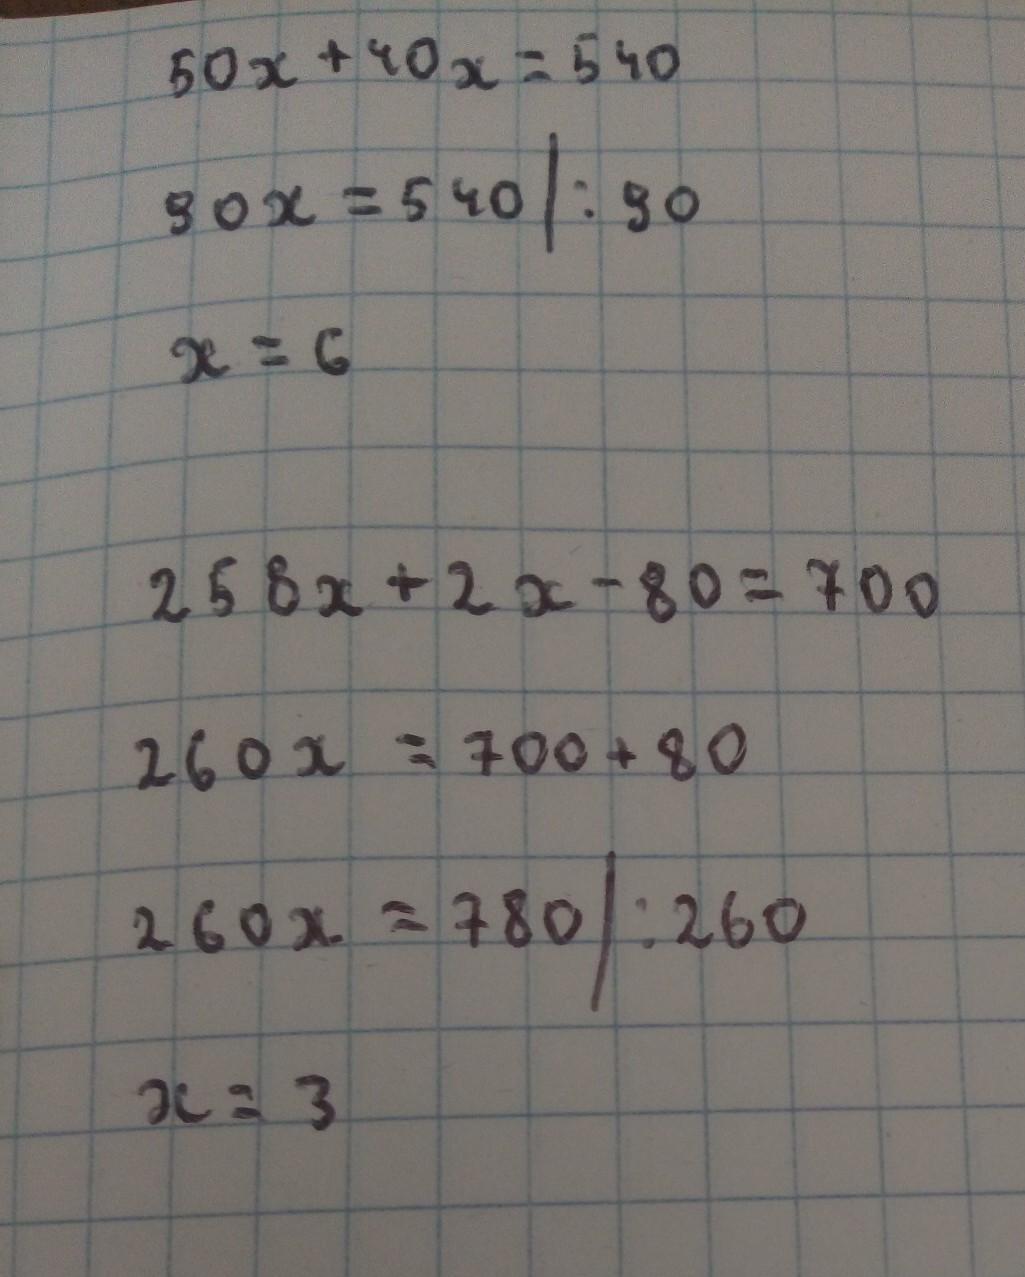 50x + 40x = 540
90x = 540 | : 90
x = 6
258x + 2x - 80 = 700
260x = 700 + 80
260x = 780 | : 260
x = 3